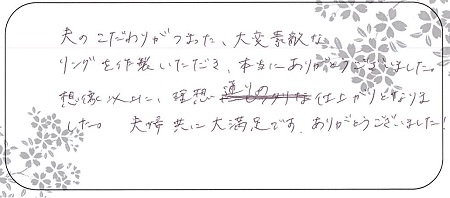 夫のこだわりがつまった、大変素敵な
リングを作製いただき、本当にありがとうございました。
想像以上に、理想通りの仕上がりとなりま
した。 夫婦共に大満足です。ありがとうございました!